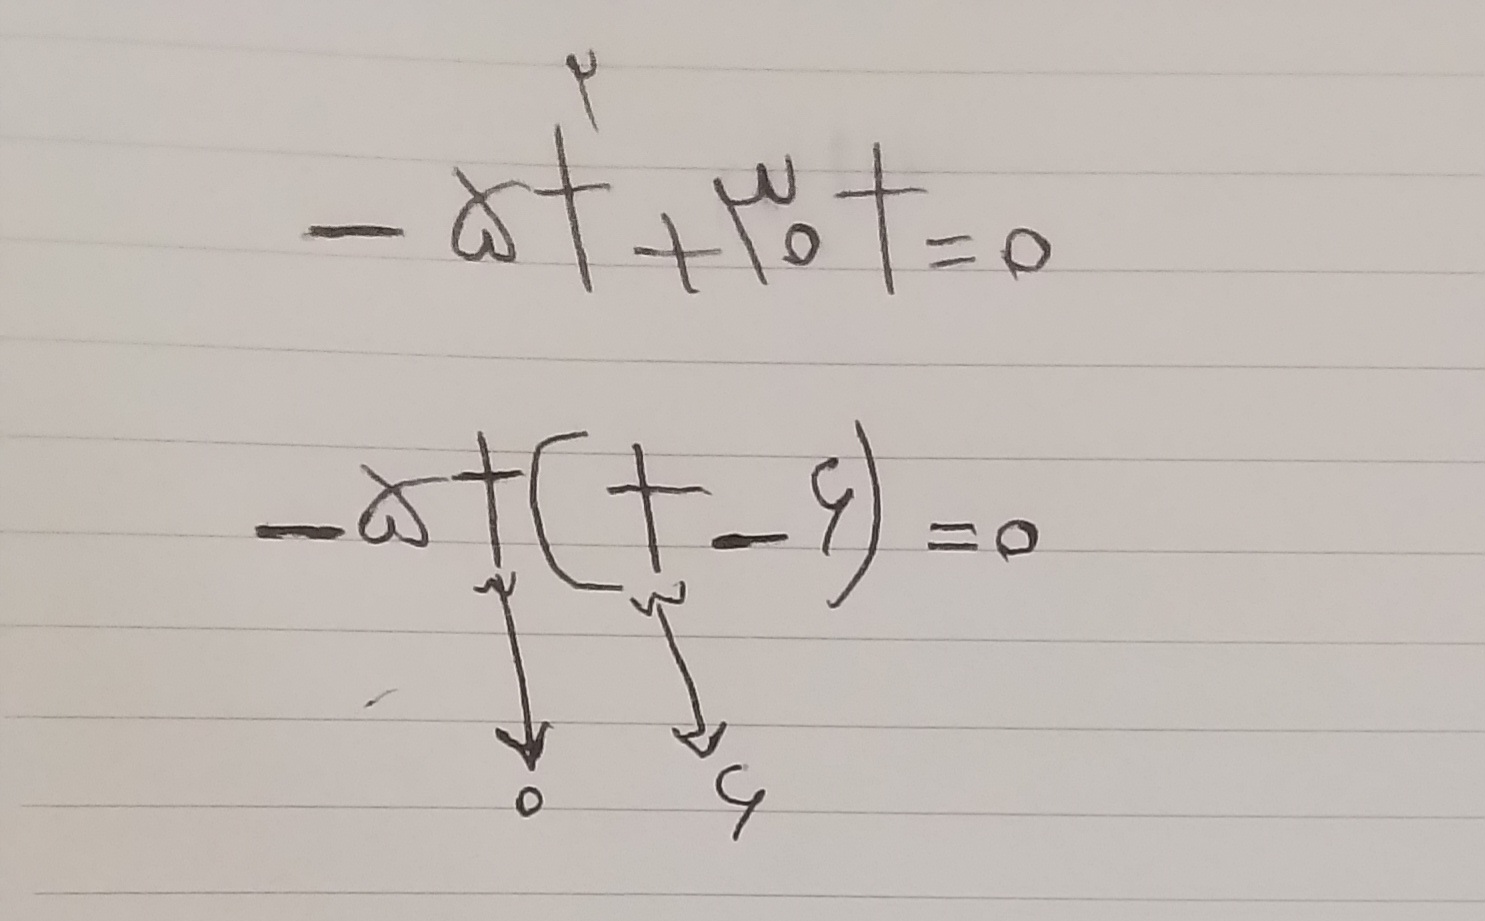 -۵t²+۳۰t=۰
-۵t(t-۶)=۰
۰ ۶